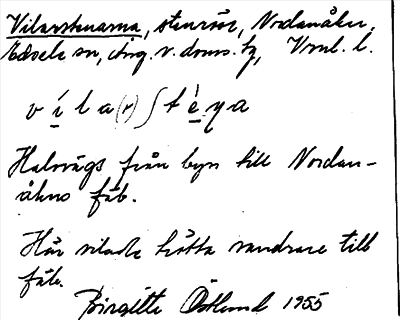 Vilarstenarna, stenrör, Nordanåker,
Edsele sn, Ång. v. doms. tg, Vnl. l.
v í l a (r) ʃ t è ɲ a
Halvvägs från byn till Nordan-
åkers fäb.
Här vilade trötta vandrare till
fäb.
Birgitta Östlund 1955